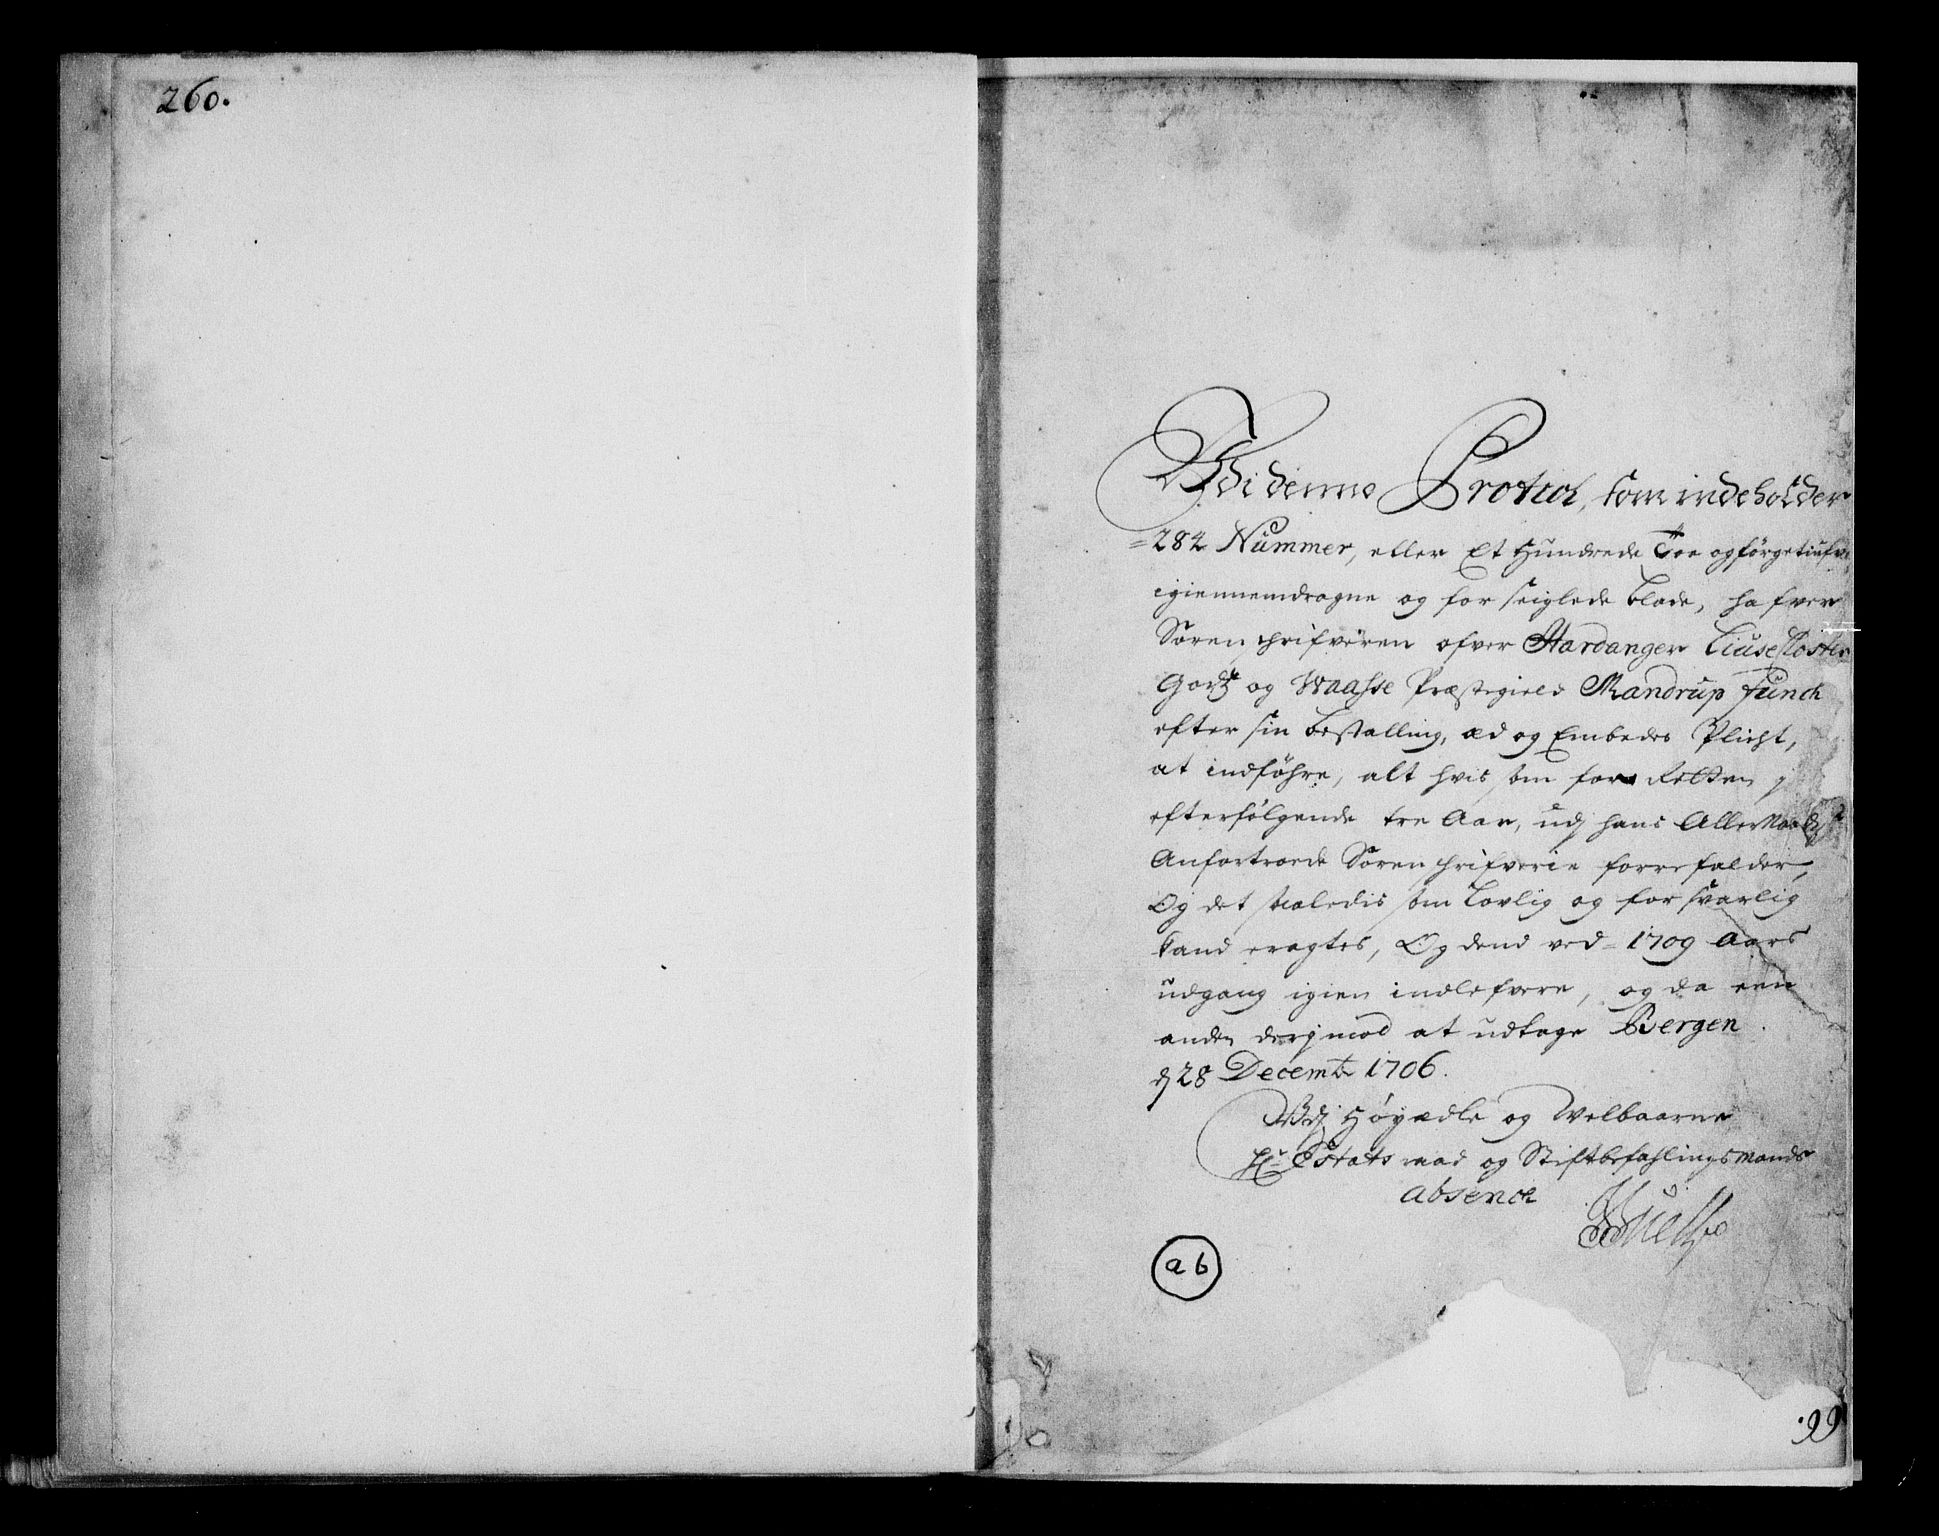 260.
Udi denne Protocol, som indeholder
284 Nummer, eller Et Hundrede Toe og førgetiufve
igiennemdragne og forseiglede blade, hafver
Sorenschrifveren ofver Hardanger Liuse Kloster
Godtz og Waasse Præstegield Mandrup Funch
efter sin bestalling, æd og Embedes Plicht,
at indføhre, alt hvis som for Retten j
efterfølgende tre Aar, udj hans
Anfortroede Sorenschrifverie forrefalder,
Og det saaledis som Lovlig og forsvarlig
kand eragtes, Og dend ved 1709 Aars
udgang igien indlefvere, og da een
anden derjmod at udtage Bergen
d 28 Decembr 1706.
Udj Høyædle og Welbaarne
Hr Estats raad og Stiftbefahlingsmands
absence
a b
99